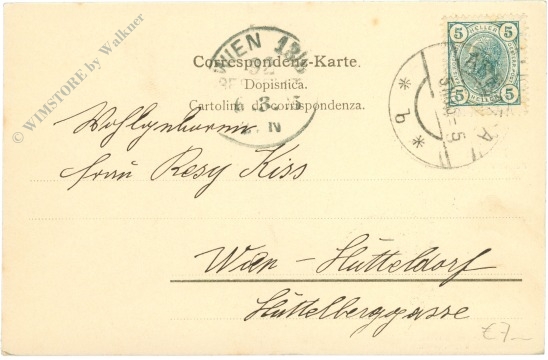 © WIMSTORE by Walkner
Correspondenz-Karte.
Dopisnica.
Cartolina da corrispondenza.
WIEN 13/5
5 HELLER 5
5 HELLER 5
* b *
Wohlgeboren
Frau Resy Kiss
Wien - Hütteldorf
Hüttelberggasse
€7.-